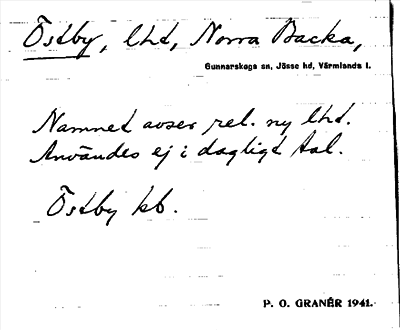 Östby, lhd, Norra Backa,
Gunnarskogs sn, Jösse hd, Värmlands l.
Namnet avser rel. ny lhd.
Användes ej i dagligt tal.
Östby kb.
P. O. GRANÉR 1941.